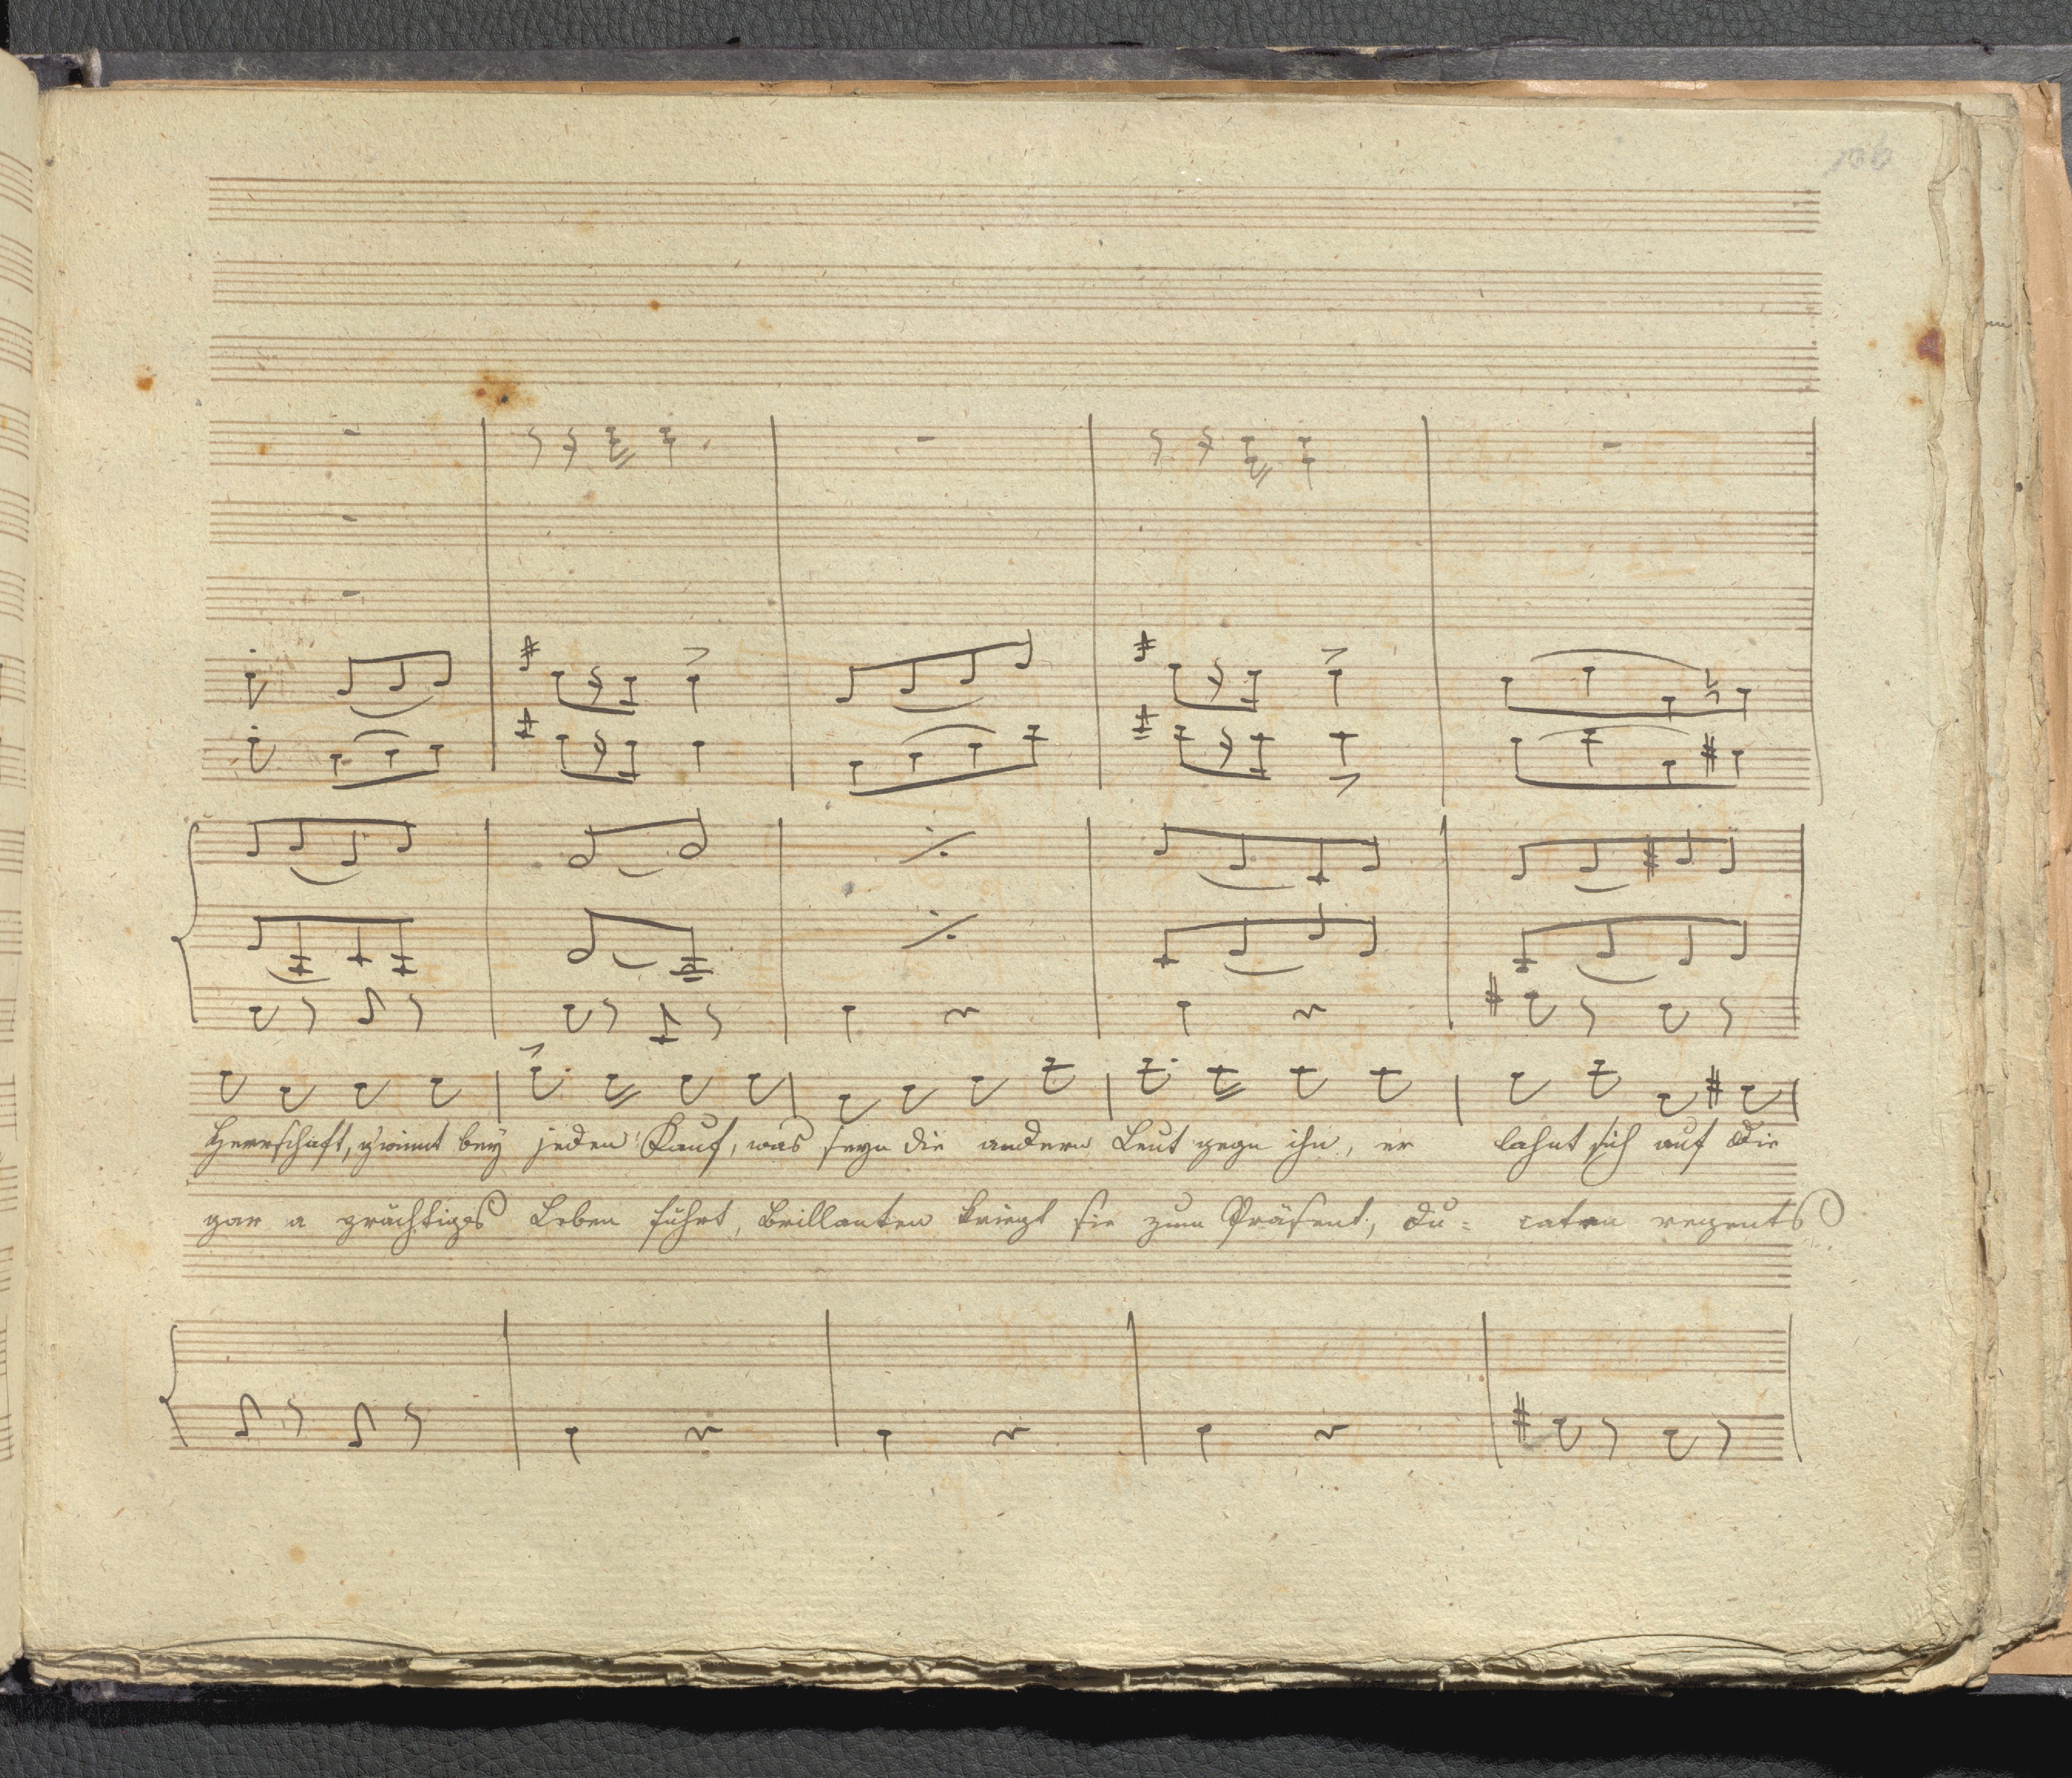 106
Herrschaft, gwinnt bey jeden Kauf, was seyn die andern Leut gegn ihn, er lahnt sich auf die
gar a prächtiges Leben führt, Brillanten kriegt sie zum Präsent, Du= caten regents